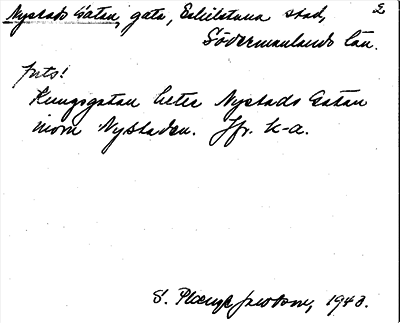 Nystads Gatan, gata, Eskilstuna stad, 2
Södermanlands län.
Ints!
Kungsgatan heter Nystads Gatan
inom Nystaden. Jfr. K-a.
S. 1948.